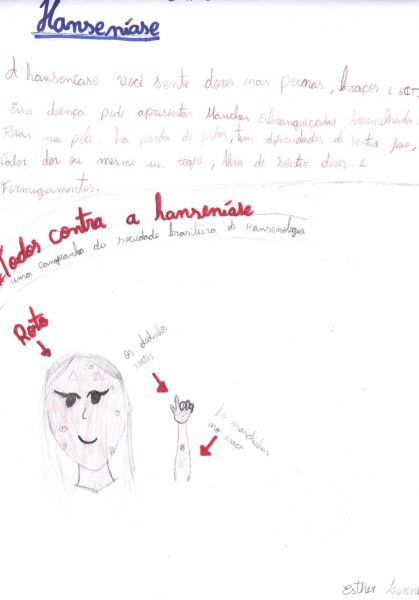 Hanseníase
A hanseníase você sente dores nas pernas, braços e ect.
Essa doença pode apresentar Manchas Esbranquiçadas, Avermelhada.
na pele. há perda de pelos, tem dificuldades de sentir frio,
Calor dor ou mesmo um toque, Além de sentir dores e
Formigamentos.
#Todos contra a hanseníase
uma campanha da sociedade brasileira de Hansenologia
Rosto
os dedinhos
As manchinhas
no braço
Esther